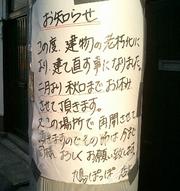 お知らせ
この度、建物の老朽化に
より、建て直す事になりました
二月より秋口までお休み
させて頂きます。
又この場所で再開させて
頂きますのでその節は今度
同様よろしくお願い致します
鳩ぽっぽ 店